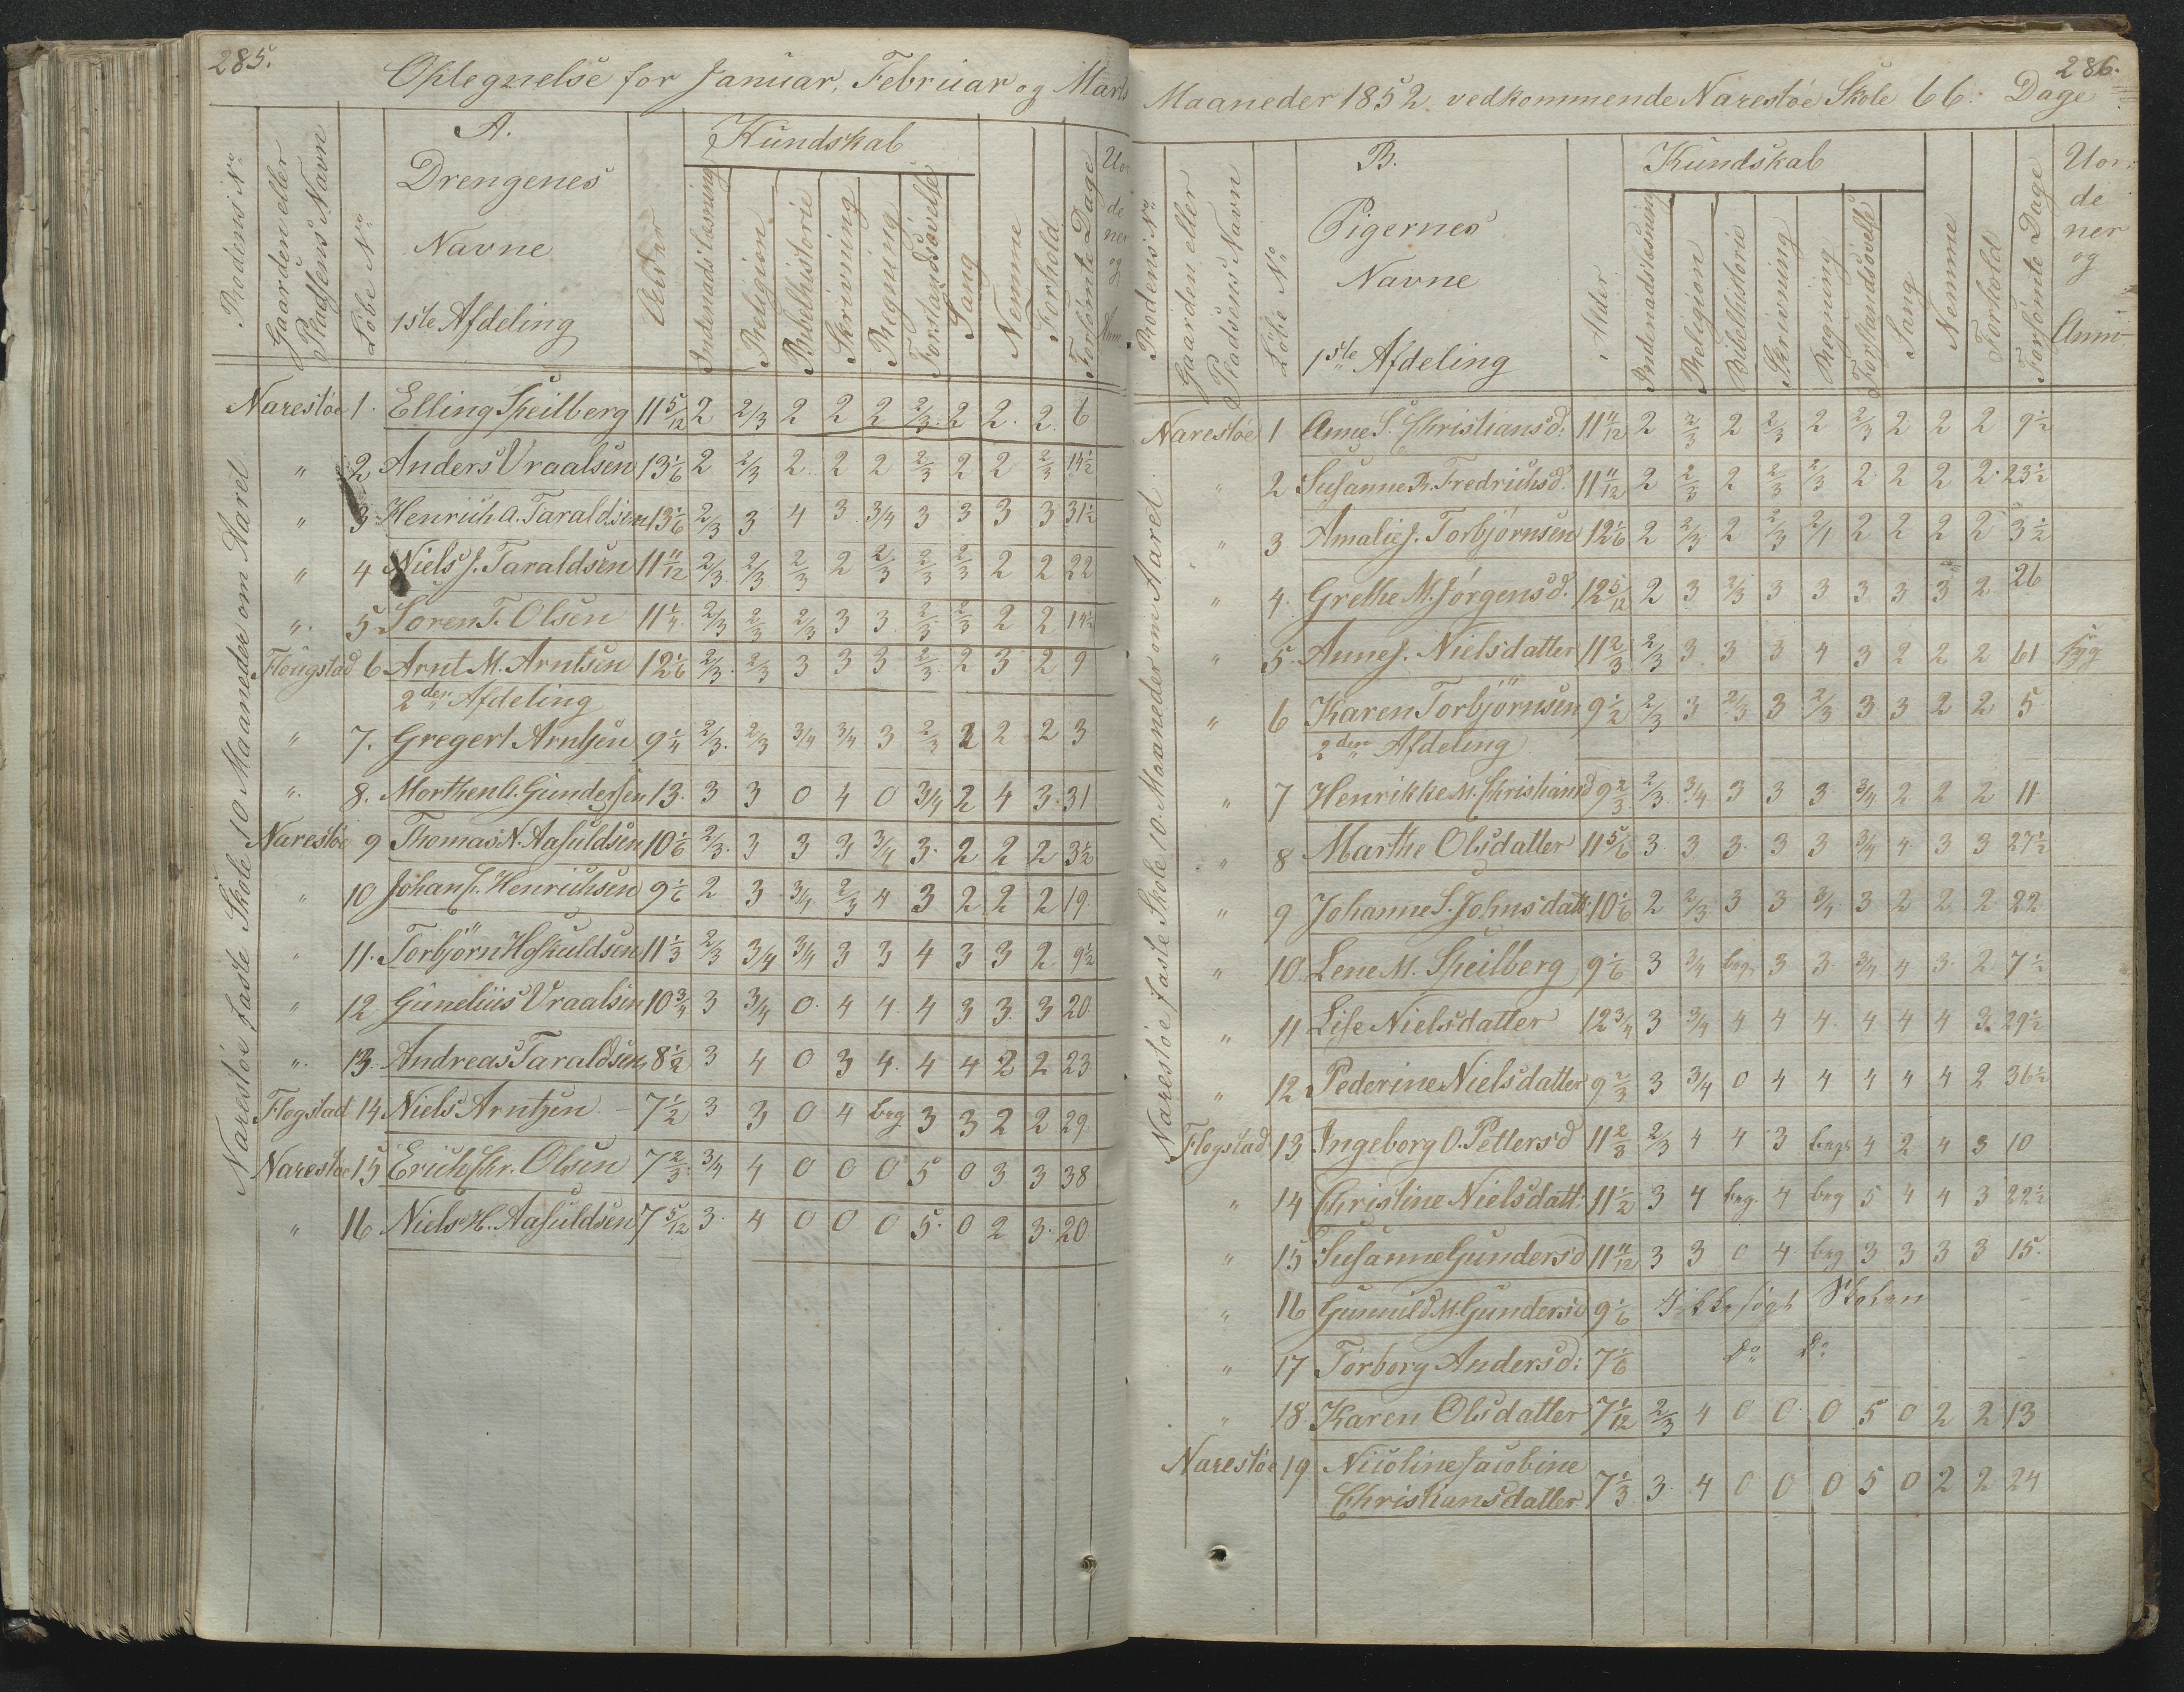 285.
Optegnelse for Januar, Februar og Marts
Rodens No
Gaarden eller Pladsens Navn
Løbe No
A.
Drengenes
Navne
1ste Afdeling
Alder
Kundskab
Indenadslæsning
Religion
Bibelhistorie
Skrivning
Regning
Forstandsøvelse
Sang
Nemme
Forhold
Forsømte Dage
Uor
de
ner
og
Anm
Narestøe faste Skole 10 Maaneder om Aaret
Narestøe 1. Elling Speilberg 11 5/12 2 2/3 2 2 2 2/3 2 2. 2. 6
" 2 Anders Vraalsen 13 1/6 2 2/3 2. 2 2 2/3 2 2 2/3 14 1/2
" 3 Henrich A. Taraldsen 13 1/6 2/3 3 4 3 3/4 3 3 3 3 31 1/2
" 4 Niels J. Taraldsen 11 11/12 2/3 2/3 2/3 2 2/3 2/3 2/3 2 2 22
" 5 Søren T. Olsen 11 1/4 2/3 2/3 2/3 3 3 2/3 2/3 2 2 14 1/2
Flougstad 6 Arnt M. Arntsen 12 1/6 2/3 2/3 3 3 3 2/3 2 3 2 9
2den Afdeling
" 7. Gregert Arntsen 9 1/4 2/3 2/3 3/4 3/4 3 2/3 2 2 2 3
" 8. Morthen G. Gundersen 13. 3 3 0 4 0 3/4 2 4 3 31
Narestøe 9 Thomas N. Aasuldsen 10 1/6 2/3 3 3 3 3/4 3 2 2 2 3 1/2
" 10 Johan F. Henrichsen 9 1/6 2 3 3/4 2/3 4 3 2 2 2 19
" 11. Torbjørn Hoskuldsen 11 1/3 2/3 3/4 3/4 3 3 4 3 3 2 9 1/2
" 12 Gunelius Vraalsen 10 3/4 3 3/4 0 4 4 4 3 3 3 20
" 13. Andreas Taraldsen 8 1/2 3 4 0 3 4 4 4 2 2 23
Flogstad 14 Niels Arntzen 7 1/2 3 3 0 4 beg 3 3 2 2 29
Narestøe 15 Erich Chr. Olsen 7 2/3 3/4 4 0 0 0 5 0 3 3 38
" 16 Niels H. Aasuldsen 7 5/12 3 4 0 0 0 5 0 2 3 20
286.
Maaneder 1852 vedkommende Narestøe Skole 66 Dage
Rodens No
Gaarden eller Pladsens Navn
Løbe No
B.
Pigernes
Navne
1ste Afdeling
Alder
Kundskab
Indenadslæsning
Religion
Bibelhistorie
Skrivning
Regning
Forstandsøvelse
Sang
Nemme
Forhold
Forsømte Dage
Uor:
de
ner
og
Anm
Narestøe faste Skole 10. Maaneder om Aaret
Narestøe 1 Anne S. Christiansd: 11 11/12 2 2/3 2 2/3 2 2/3 2 2 2 9 1/2
" 2 Susanne R. Fredrichsd. 11 11/12 2 2/3 2 2/3 2/3 2 2 2 2 23 1/2
" 3 Amalie J. Torbjørnsen 12 1/6 2 2/3 2 2/3 2/1 2 2 2 2 3 1/2
" 4. Grethe M. Jørgensd. 12 5/12 2 3 2/3 3 3 3 3 3 2 26
" 5 Anne J. Nielsdatter 11 2/3 2/3 3 3 3 4 3 2 2 2 61 syg
" 6 Karen Torbjørnsen 9 1/2 2/3 3 2/3 3 2/3 3 3 2 2 5
2den Afdeling
" 7 Henrikke M. Christiansd 9 2/3 2/3 3/4 3 3 3 3/4 2 2 2 11
" 8 Marthe Olsdatter 11 5/6 3 3 3 3 3 3/4 4 3 3 27 1/2
" 9 Johanne S. Johnsdatt: 10 1/6 2 2/3 3 3 3/4 3 2 2 2 22
" 10. Lene M. Speilberg 9 1/6 3 3/4 beg. 3 3 3/4 4 3 2 7 1/2
" 11 Lise Nielsdatter 12 3/4 3 3/4 4 4 4 4 4 4 3 29 1/2
" 12 Pederine Nielsdatter 9 2/3 3 3/4 0 4 4 4 4 4 2 36 1/2
Flogstad 13 Ingeborg O. Pettersd 11 2/3 2/3 4 4 3 beg. 4 2 4 3 10
" 14 Christine Nielsdatt: 11 1/2 3 4 beg. 4 beg 5 4 4 3 22 1/2
" 15 Susanne Gundersd 11 11/12 3 3 0 4 beg 3 3 3 3 15.
" 16 Gunuld M. Gundersd 9 1/6 Ikke søgt Skolen
" 17 Torborg Andersd: 7 1/6 Do Do
" 18 Karen Olsdatter 7 1/12 2/3 4 0 0 0 5 0 2 2 13
Narestøe 19 Nicoline Jacobine
Christiansdatter 7 1/3 3 4 0 0 0 5 0 2 2 24